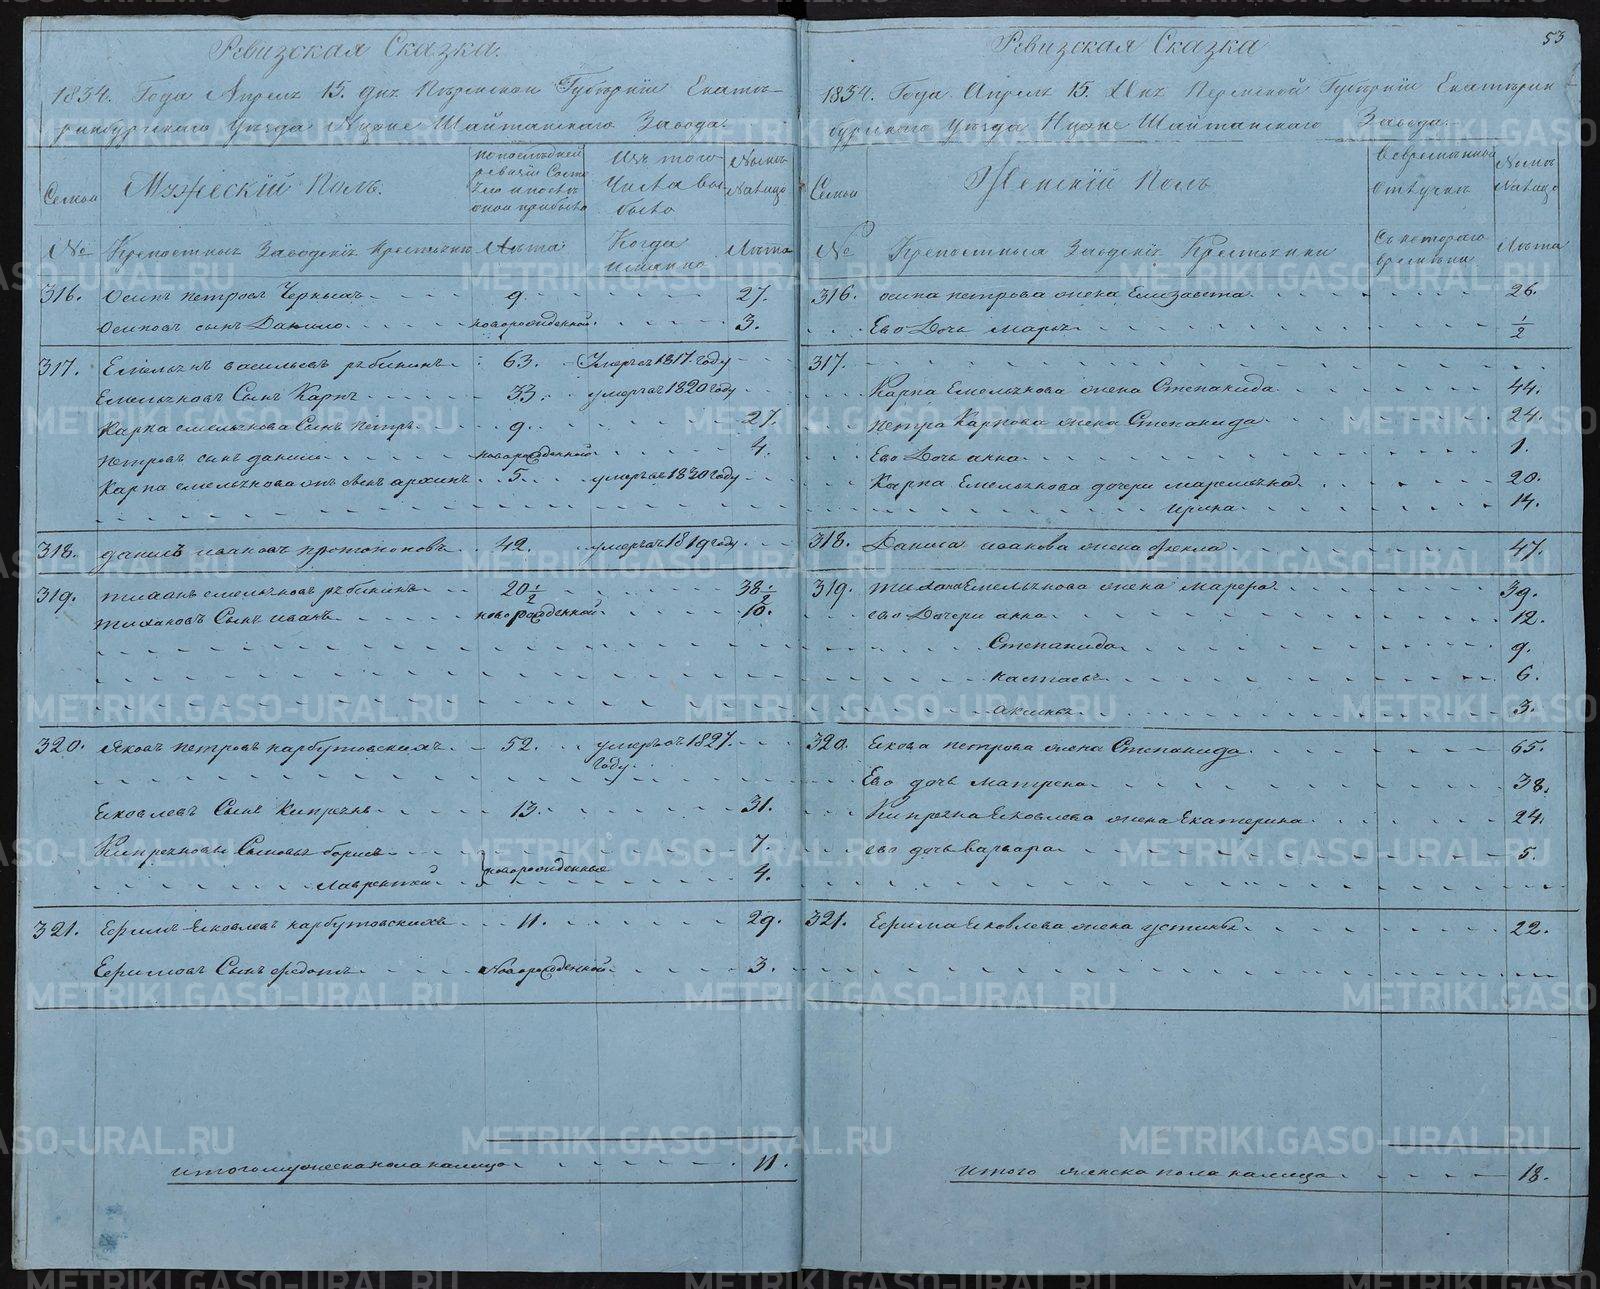 Ревизская Сказка.
1834. Года Апреля 15. дня Пермской Губернии Екате-
ринбургского Уезда Шайтанского Завода.
Семьи
Мужеский Полъ.
по последней ревизии состояло и после оной прибыло
Изъ того числа выбыло
Ныне на лицо
№
Крепостныхъ Заводскихъ Крестьянъ
Лета
Когда именно
Лета
316. Осипъ петровъ Черныхъ 9. 27.
Осиповъ сынъ Данило новорожденной 3.
317. Емельянъ васильевъ рябининъ 63. Умеръ въ 1817 году
Емельяновъ Сынъ Карпъ 33. умеръ въ 1820 году
Карпа емельянова Сынъ петръ 9. 27.
петровъ сынъ данило новорожденной 4.
Карпа емельянова сынъ архипъ 5. умеръ въ 1830 году
318. данило ивановъ протопоповъ 42. умеръ въ 1819 году
319. тиханъ емельяновъ рябининъ 20 1/2 38 1/2
тихановъ Сынъ иванъ новорожденной 10.
320. яковъ петровъ карбутовскихъ 52. умеръ въ 1827. году.
Яковлевъ Сынъ Киприянъ 13. 31.
Киприяновы Сыновья борисъ 7.
лаврентей новорожденныя 4.
321. Ефимъ Яковлевъ карбутовскихъ 11. 29.
Ефимовъ Сынъ федотъ Новорожденной 3.
итого мужеска пола налицо 11.
53
Ревизская Сказка
1834. Года Апреля 15. Дня Пермской Губернии Екатерин-
бургского Уезда Шайтанского Завода.
Семьи
Женский Полъ
Во временной отлучке
Ныне на лицо
№
Крепостныя Заводския Крестьянки
Съ которого времени
Лета
316. осипа петрова жена Елизавета 26.
Ево Дочь Марья 1/2
317.
Карпа Емельянова жена Степанида 44.
петра Карпова жена Степанида 24.
Ево Дочь анна 1.
Карпа Емельянова дочери маремьяна 20.
ирина 14.
318. Данила иванова жена фекла 47.
319. тихана Емельянова жена марфа 39.
ево Дочери анна 12.
Степанида 9.
настасья 6.
аксинья 3.
320. Якова петрова жена Степанида 65.
Ево дочь матрена 38.
Киприяна Яковлева жена Екатерина 24.
ево дочь варвара 5.
321. Ефима Яковлева жена устинья 22.
итого женска пола налицо 18.
METRIKI.GASO-URAL.RU